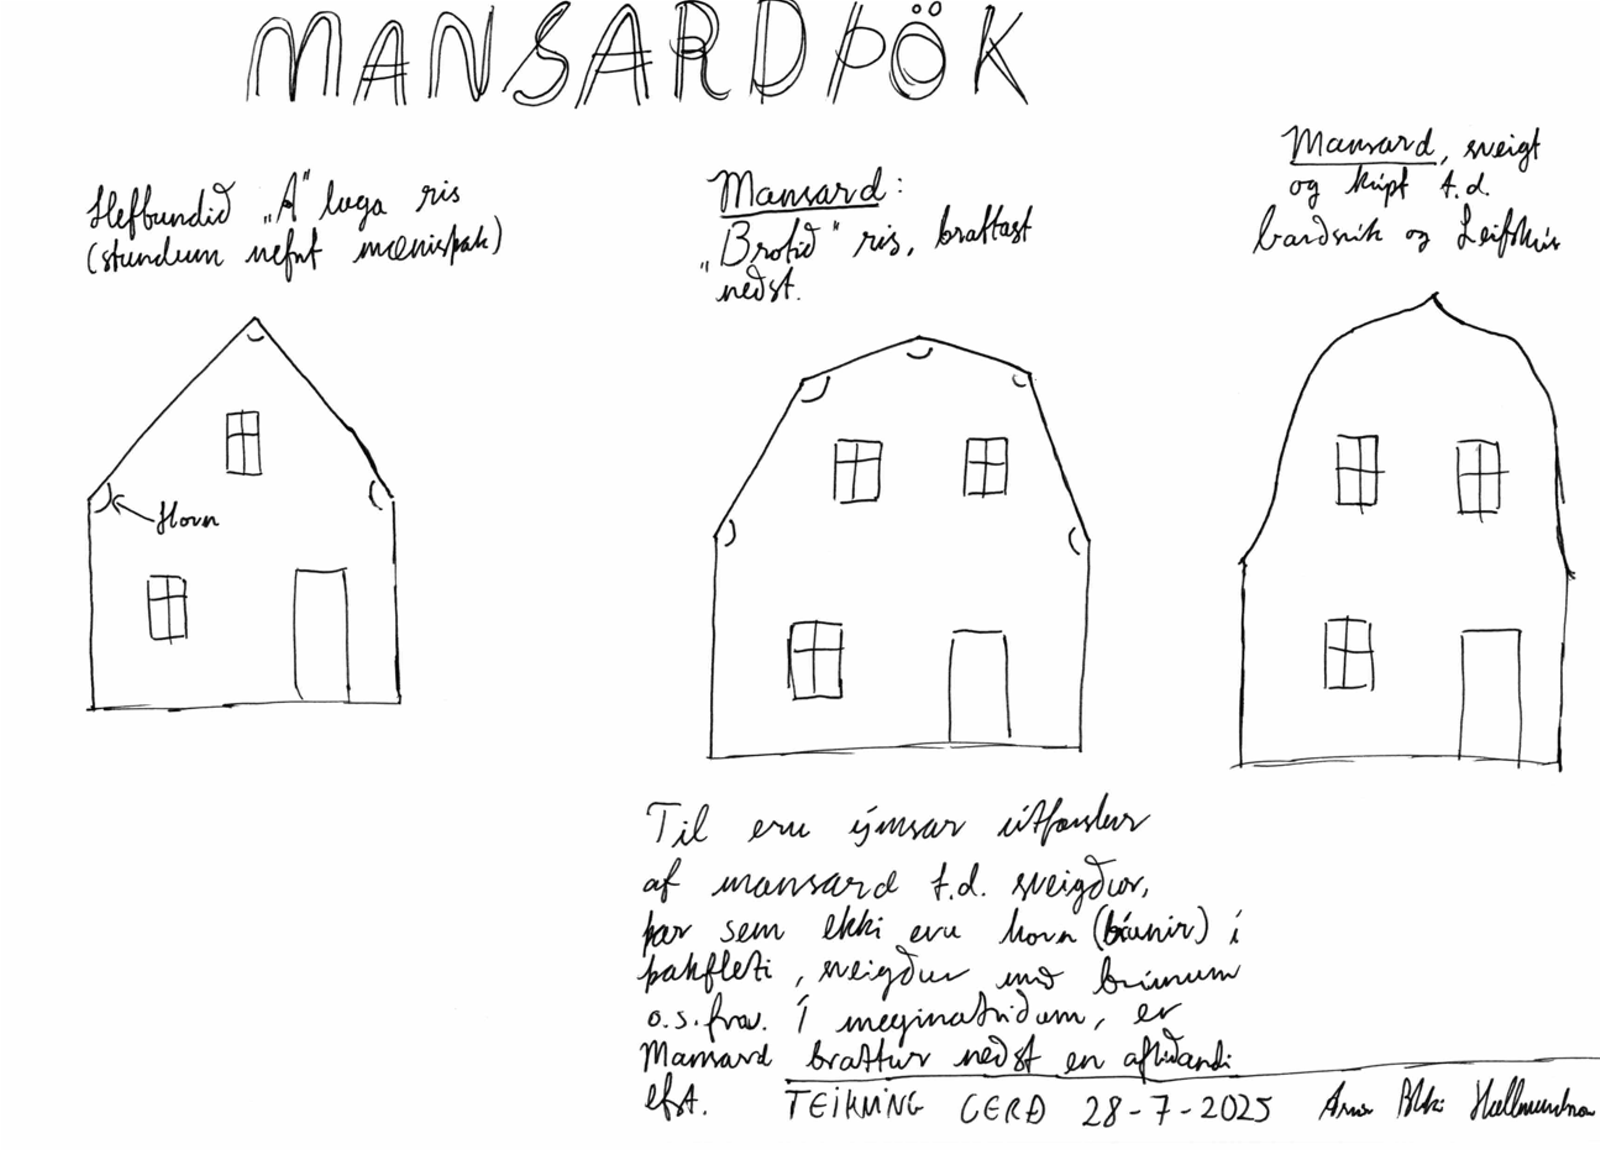 MANSARDÞÖK
Hefbundið „A" laga ris
(stundum nefnt mænisþak)
Horn
Mansard:
„Brotið" ris, brattast
neðst.
Mansard, sveigt
og kúpt t.d.
barðsnik og Leifshús
Til eru ýmsar útfærslur
af mansard t.d. sveigður,
þar sem ekki eru horn (brúnir) í
þakfleti, sveigður með brúnum
o.s.frav. Í meginatriðum, er
Mansard brattur neðst en aflíðandi
efst.
TEIKNING GERÐ 28-7-2025